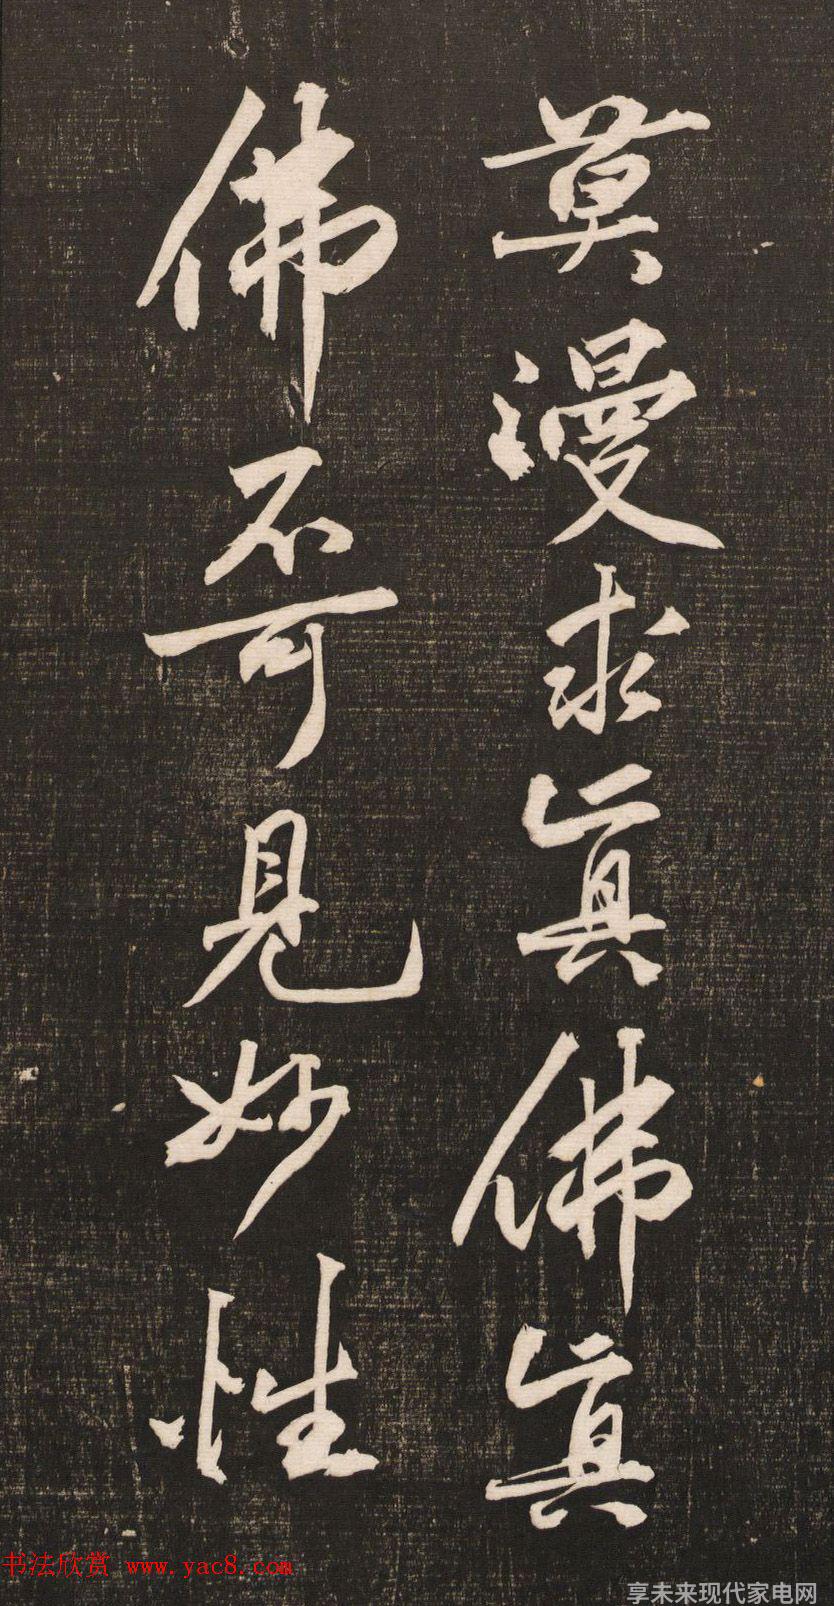 莫漫求真佛真
佛不可見妙性
书法欣赏 www.yac8.com
享未来现代家电网